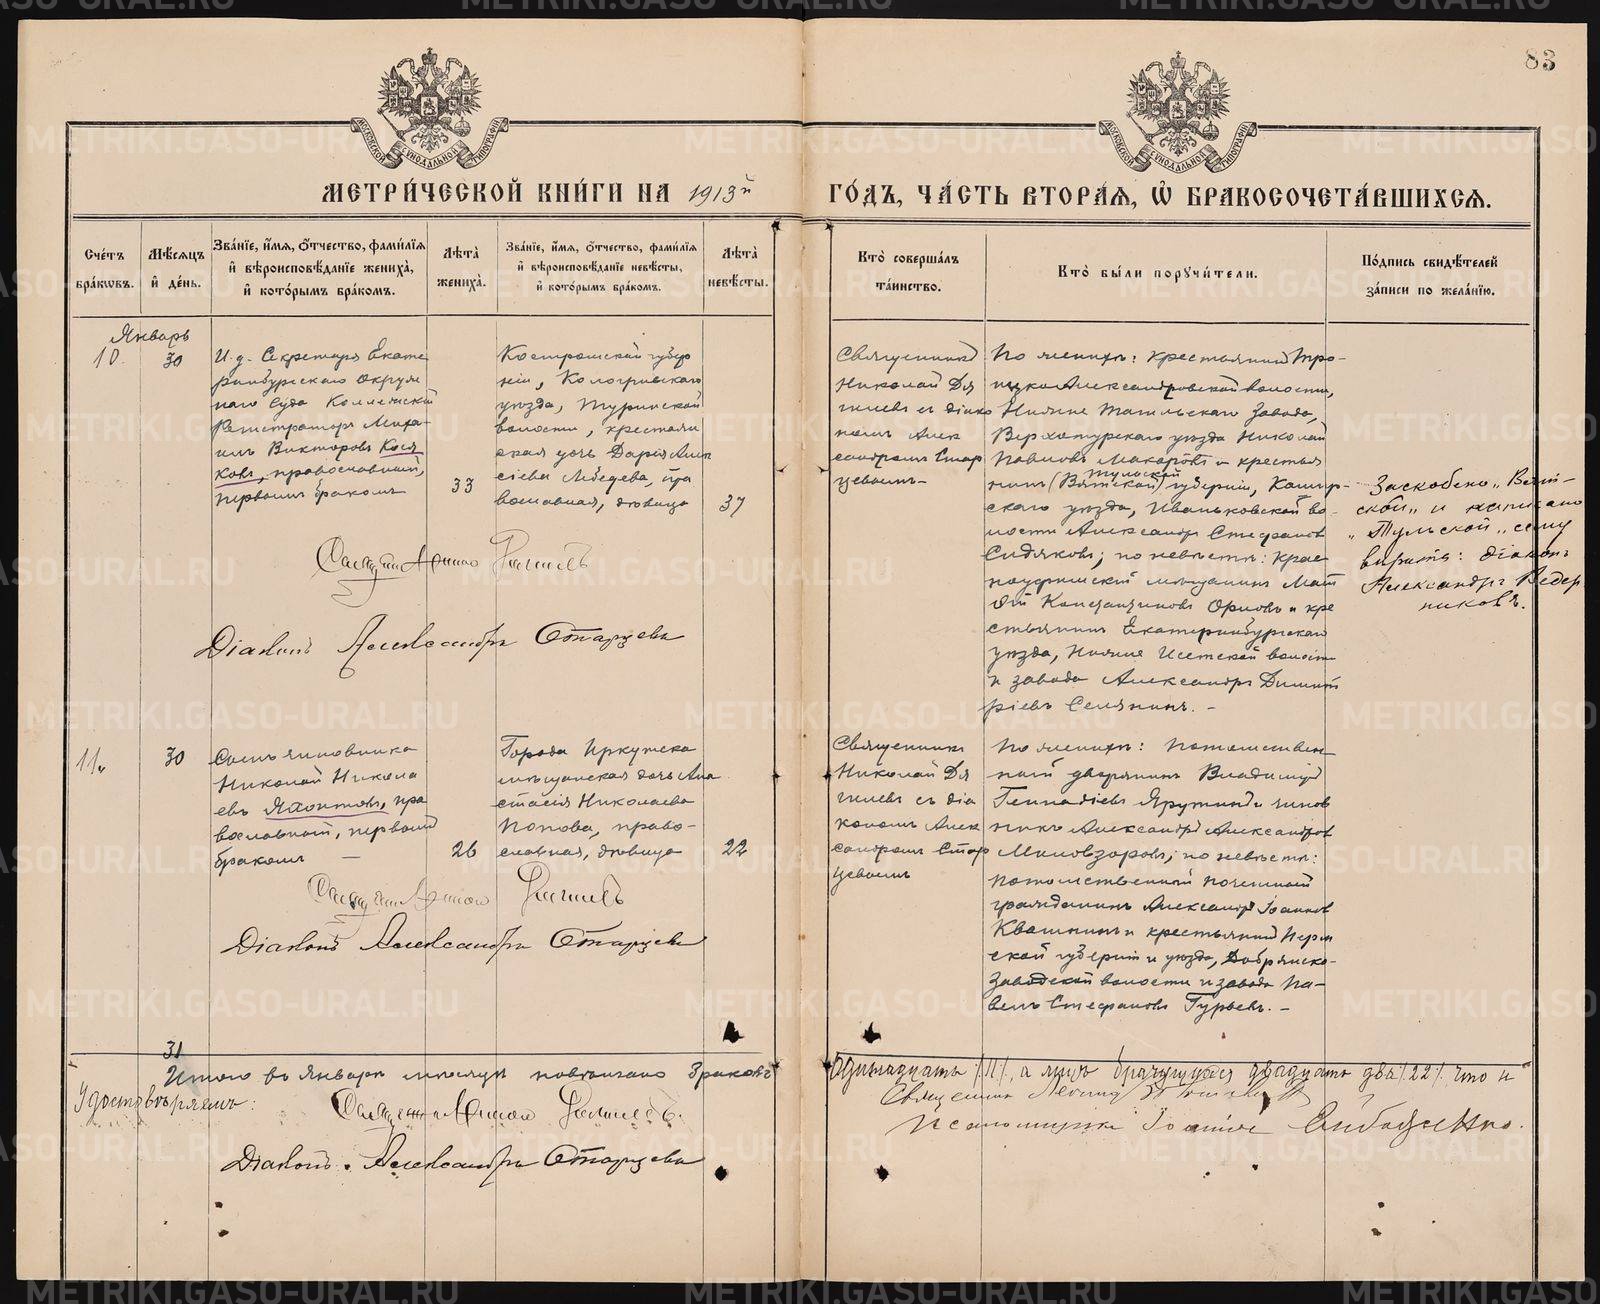 83
МОСКОВСКОЙ СѴНОДАЛЬНОЙ ТИПОГРАФІИ
МОСКОВСКОЙ СѴНОДАЛЬНОЙ ТИПОГРАФІИ
МЕТРИ́ЧЕСКОЙ КНИ́ГИ НА 1913й
ГО́ДЪ, ЧА́СТЬ ВТОРА́Я, Ѽ БРАКОСОЧЕТА́ВШИХСЯ.
Сче́тъ бра́кωвъ.
Мѣ́сяцъ и҆ де́нь.
Зва́нїе, и҆́мя, ѻ҆́тчество, фами́лїя
и҆ вѣроисповѣ́данїе жениха̀,
и҆ кото́рымъ бра́комъ.
Лѣта̀ жениха̀.
Зва́нїе, и҆́мя, ѻ҆́тчество, фами́лїя
и҆ вѣроисповѣ́данїе невѣ́сты,
и҆ кото́рымъ бра́комъ.
Лѣта̀ невѣ́сты.
Кто̀ соверша́лъ
та́инство.
Кто̀ бы́ли порꙋчи́тели.
По́дпись свидѣ́телей
за́писи по жела́нїю.
Январь
10.
30
И. д. Секретаря Екате
ринбургскаго Окруж
наго Суда Коллежскій
Регистраторъ Миха-
илъ Викторовъ Кося
ковъ, православный,
первымъ бракомъ
33
Костромской губер
ніи, Кологривскаго
уѣзда, Туринской
волости, крестьян
ская дочь Дарія Алек
сіева Лебедева, пра
вославная, дѣвица
37
Священникъ
Николай Дя
гилевъ съ діако
номъ Алек
сандромъ Стар
цевымъ-
По женихѣ: крестьянинъ Тро-
ицко Александровской волости,
Нижне Тагильскаго Завода,
Верхотурскаго уѣзда Николай
Павловъ Макаровъ и крестья
Тульской
нинъ (Вятской) губерніи, Кашир-
скаго уѣзда, Иваньковской во-
лости Александръ Стефановъ
Сидяковъ; по невѣстѣ: Крас
ноуфимскій мѣщанинъ Мат
ѳій Константиновъ Орловъ и кре
стьянинъ Екатеринбургскаго
уѣзда, Нижне Исетской волости
и завода Александръ Димит
ріевъ Селянинъ. -
Заскоблено „Вят-
ской" и написано
„Тульской" сему
вѣрить: діаконъ
Александръ Ведер
никовъ.
Священникъ Николай Дягилевъ
Діаконъ Александръ Старцевъ
11.
30
Сынъ чиновника
Николай Никола
евъ Яхонтовъ, пра
вославный, первымъ
бракомъ -
26
Города Иркутска
мѣщанская дочь Ана
стасія Николаева
Попова, право-
славная, дѣвица
22
Священникъ
Николай Дя
гилевъ съ діа
кономъ Алек
сандромъ Стар
цевымъ
По женихѣ: Потомствен
ный дворянинъ Владиміръ
Геннадіевъ и чинов
никъ Александръ Александровъ
Миловзоровъ; по невѣстѣ:
потомственный почетный
гражданинъ Александръ Іоанновъ
Квашнинъ и крестьянинъ Перм
ской губерніи и уѣзда, Добрянско-
Заводской волости и завода Па-
велъ Стефановъ Гурьевъ. -
Священникъ Николай Дягилевъ
Діаконъ Александръ Старцевъ
31
Итого въ Январѣ мѣсяцѣ повѣнчано браковъ одиннадцать /11/, а лицъ брачущихся двадцать два /22/ что и
Удостовѣряемъ: Священникъ Николай Дягилевъ.
Священникъ
Діаконъ Александръ Старцевъ
Псаломщикъ Іоаннъ
METRIKI.GASO-URAL.RU